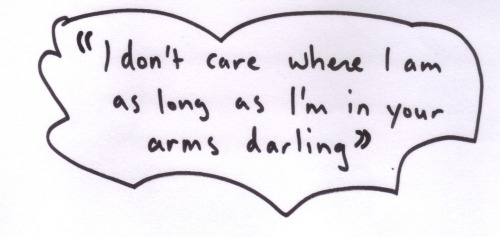 "I don't care where I am
as long as I'm in your
arms darling"